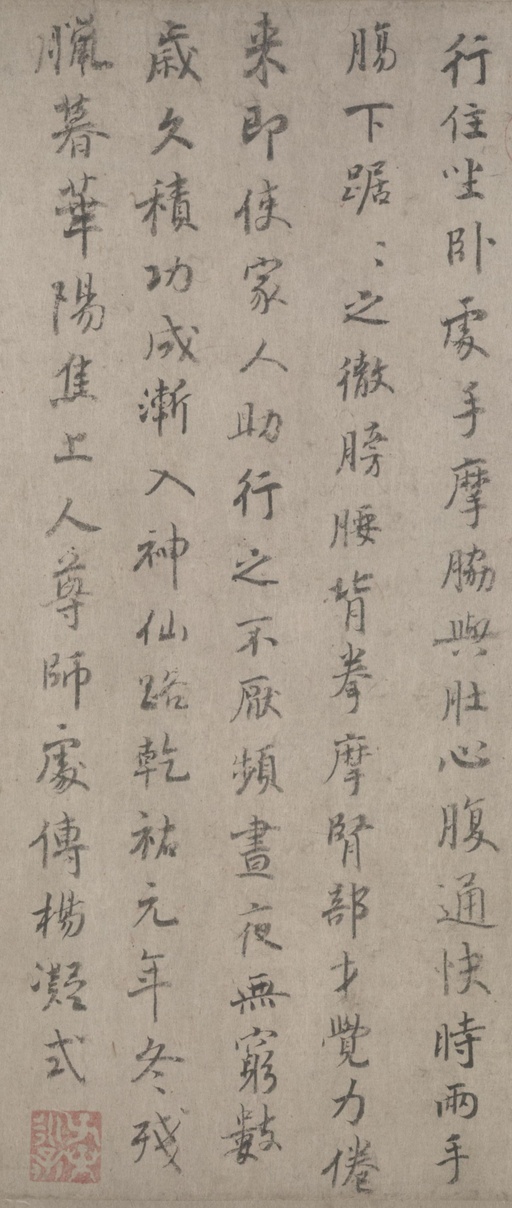 行住坐卧處手摩脇與肚心腹通快時兩手
腸下踞〻之徹膀腰背拳摩腎部才覺力倦
来即使家人助行之不厭頻晝夜無窮數
歲久積功成漸入神仙路乾祐元年冬殘
臘暮華陽焦上人尊師處傳楊凝式